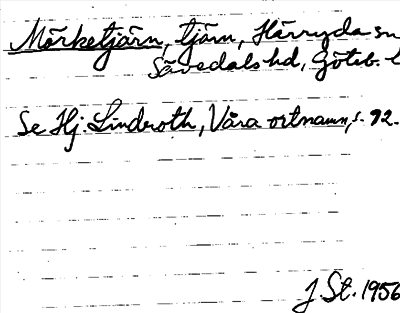 Mörketjärn, tjärn, Härryda sn
Sävedals hd, Göteb. l
Se Hj. Lindroth, Våra ortnamn, s. 92.
J. St. 1956